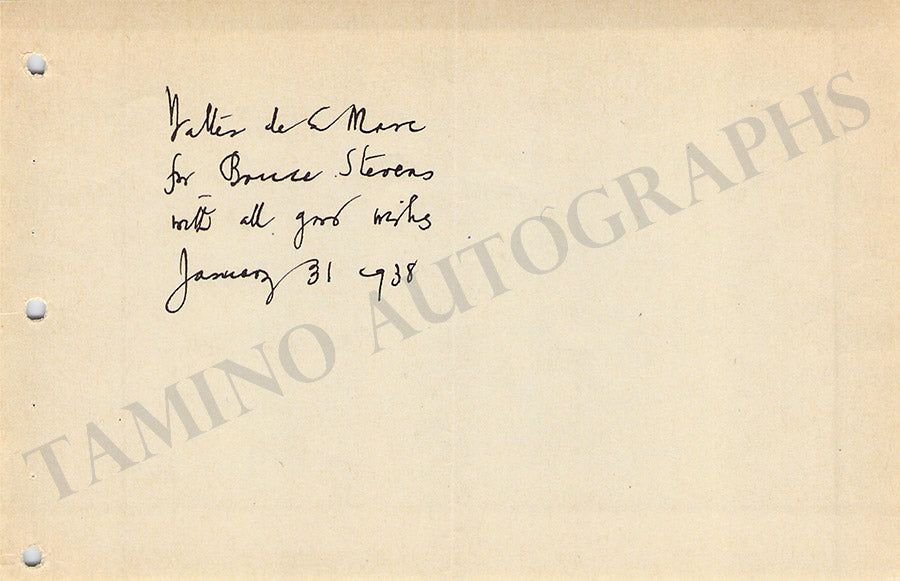 Walter de la Mare
for Bruce Stevens
with all good wishes
January 31 1938
TAMINO AUTOGRAPHS